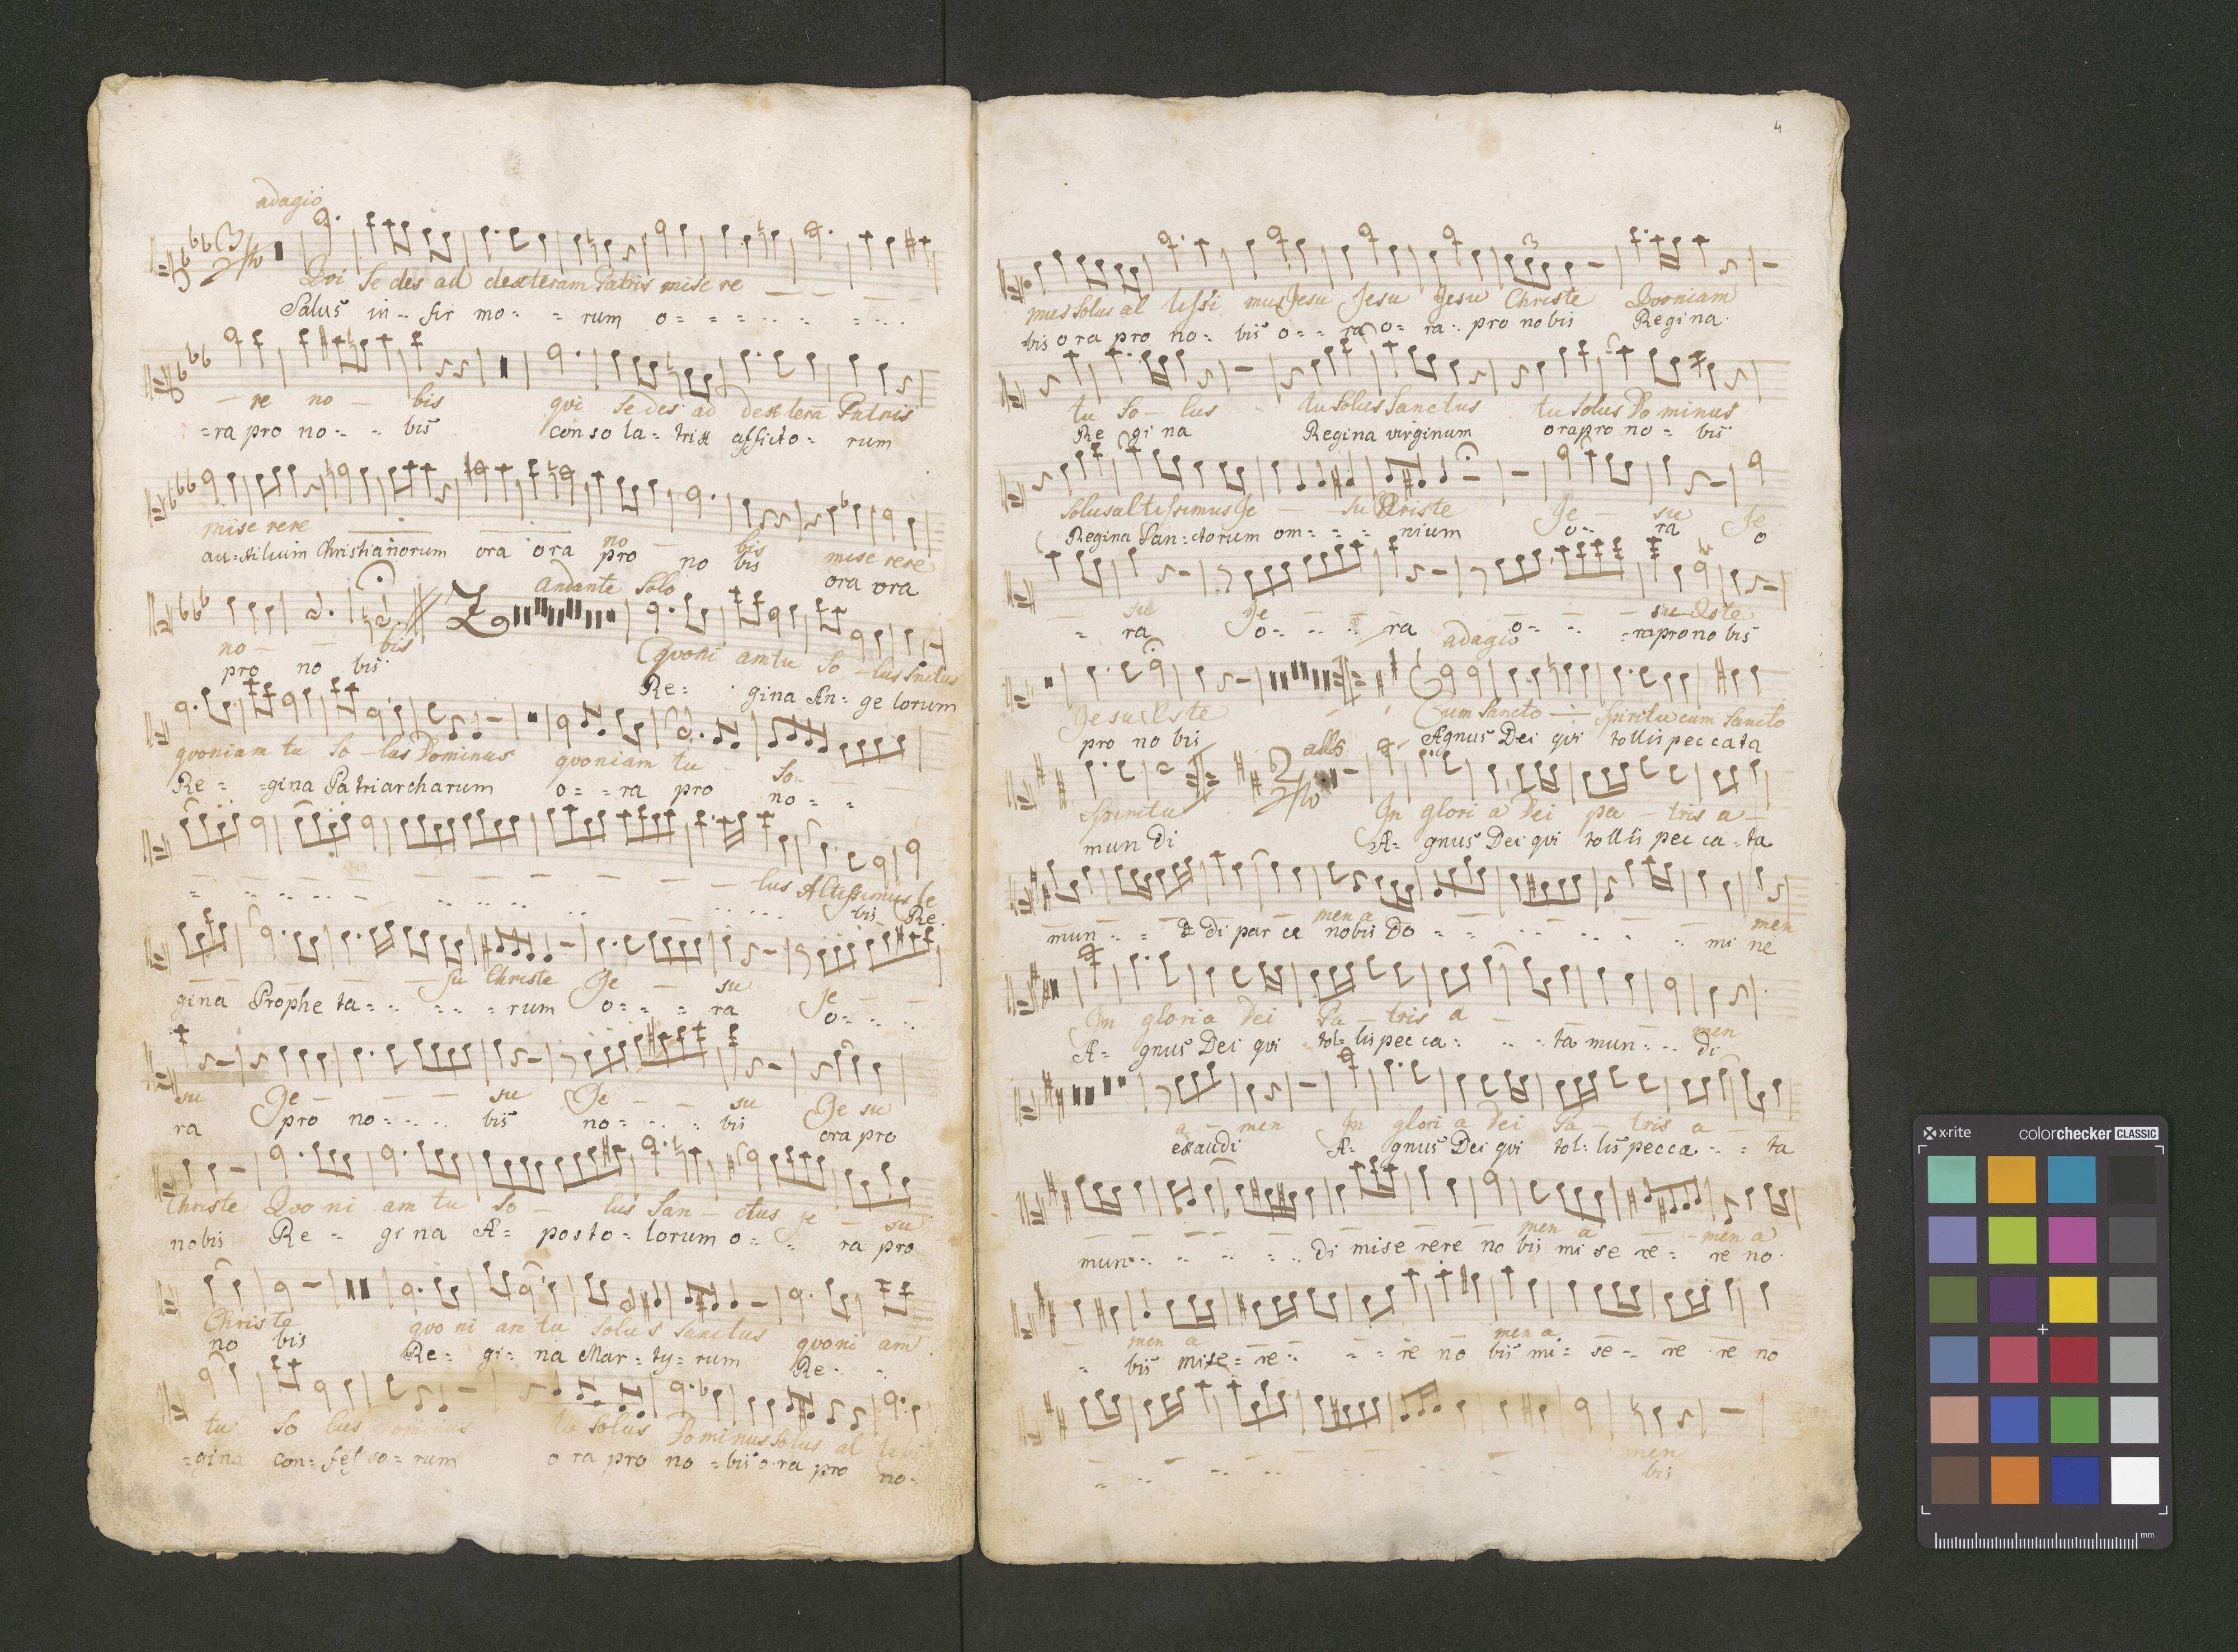 adagio
Qvi Se des ad dexteram Patris mise re
Salus in = fir mo = = rum o = = =
re no bis qvi se des ad dextera Patris
= ra pro no = = bis con so la = trix afflicto = rum
mise rere no bis mise rere
au = xilium Christianorum ora ora pro no bis ora ora
andante Solo
no bis qvoni am tu So lus Snctus
pro no bis Re = gina An = ge lorum
qvoniam tu So lus Dominus qvoniam tu So
Re = = gina Patriarcharum o = = ra pro no = =
lus Altissimus Je
bis Re
Su Christe Je su Je
gina Prophe ta = = rum o = = = ra o =
su Je su Je su Je su
ra pro no = bis no = bis ora pro
Christe Qvo ni am tu so lus San ctus Je su
nobis Re = gi na A = posto = lorum o = = ra pro
Christe qvo ni am tu Solus Sanctus qvoni am
no bis Re = gi = na Mar = ty = rum Re =
tu So lus Dominus tu Solus Dominus Solus al
= gina con = fes so = rum o ra pro no = bis o ra pro no =
4
mus Solus al tissi mus Jesu Jesu Jesu Christe Qvoniam
bis o ra pro no = bis o = = ra o = ra = pro nobis Regina
3
tu So lus tu Solus Sanctus tu Solus Do minus
Re gi na Regina virginum ora pro no = bis
Solus altissimus Je su Christe Je su Je
Regina San = ctorum om = = = nium o = ra o
su Je su Xste
= ra o = ra o = = ra pro no bis
adagio
Jesu Xste Cum Sancto Spiritu cum Sancto
pro no bis Agnus Dei qvi tollis peccata
allo
Spiritu In glori a Dei pa tris a
mun di A = gnus Dei qvi tollis pec ca = ta
men a men
mun = = di par ce nobis Do = = mi ne
In gloria Dei Pa tris a men
A = gnus Dei qvi tol = lis pec ca = ta mun = di
a men In glori a Dei Pa tris a
exaudi A = gnus Dei qvi tol = lis pecca = = ta
men a men a
mun = di mise rere no bis mi se re = re no
men a men a
= bis mise = re = = = re no bis mi = se = re re no
men
bis
x·rite colorchecker CLASSIC
mm